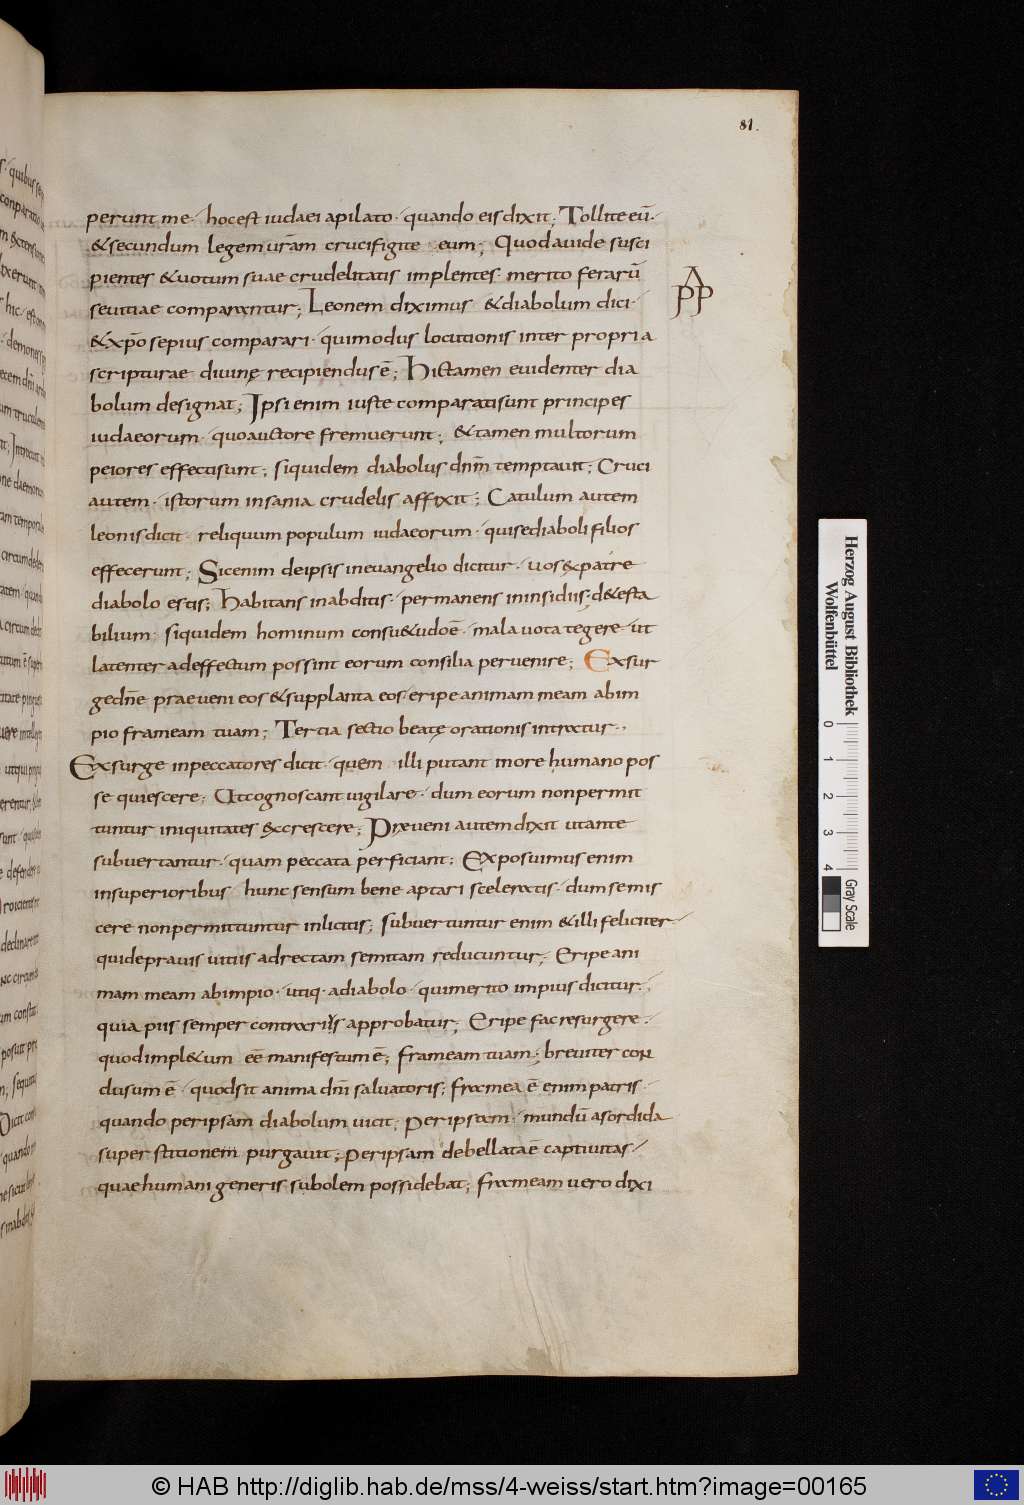 81.
perunt me · hocest iudaei apilato · quando eis dixit; Tollite eū ·
&secundum legem ur̄am crucifigite eum; Quod auide susci
pientes &uotum suae crudelitatis implentes · merito ferarū
seuitiae comparantur; Leonem diximus &diabolum dici ·
&xp̄o sepius comparari · qui modus locutionis inter propria
scripturae diuinę recipiendus ē; hic tamen euidenter dia
bolum designat; Ipsi enim iuste comparati sunt principes
iudaeorum · quo auctore fremuerunt; &tamen multorum
peiores effecti sunt; siquidem diabolus dn̄m temptauit; Cruci
autem · istorum insania crudelis affixit; Catulum autem
leonis dicit · reliquum populum iudaeorum · qui se diaboli filios
effecerunt; Sic enim de ipsis in euangelio dicitur · uos ex patre
diabolo estis; habitans in abditis · permanens in insidiis; d&esta
bilium · siquidem hominum consu&udo ē · mala uota tegere · ut
latenter ad effectum possint eorum consilia peruenire; Exsur
ge dn̄e praeueni eos &supplanta eos · eripe animam meam ab im
pio frameam tuam; Tertia sectio beatę orationis intratur ··
Exsurge in peccatores dicit · quem illi putant more humano pos
se quiescere; Ut cognoscant uigilare · dum eorum non permit
tuntur iniquitates excrescere; Praeueni autem dixit ut ante
subuertantur · quam peccata perficiant; Exposuimus enim
in superioribus · hunc sensum bene aptari sceleratis · dum se mis
cere non permittuntur inlicitis; subuertuntur enim &illi feliciter
qui de prauis uitiis ad rectam semitam reducuntur; Eripe ani
mam meam ab impio · utiq · a diabolo · qui merito impius dicitur ·
quia piis semper contrarius approbatur; Eripe fac resurgere ·
quod impl&um eē manifestum ē; frameam tuam; breuiter con
clusum ē · quod sit anima dn̄i saluatoris; framea ē enim patris ·
quando per ipsam diabolum uicit; per ipsam · mundū a sordida
superstitionem purgauit; per ipsam debellata ē captiuitas ·
quae humani generis subolem possidebat; frameam uero dixi
A
PP
Herzog August Bibliothek
Wolfenbüttel
0 1 2 3 4
Gray Scale
© HAB http://diglib.hab.de/mss/4-weiss/start.htm?image=00165